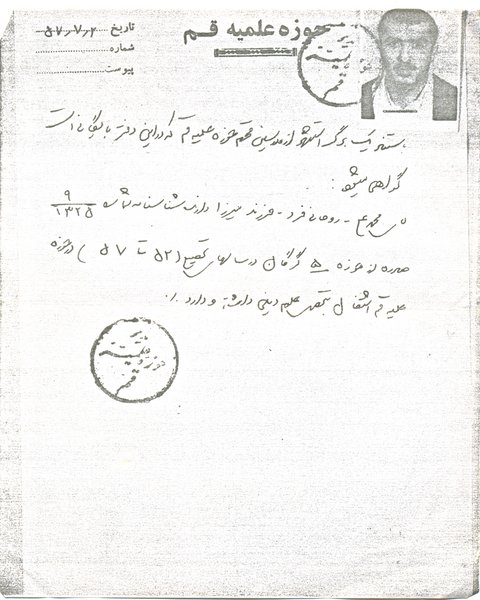 حوزه علمیه قم
تاریخ ۵۷٫۷٫۲
شماره
پیوست
مدیریت حوزه علمیه قم
یک برگ استشهاد از مدرسین محترم حوزه علمیه قم که در این دفتر بایگانی است
گواهی میشود :
محمد روحانی فرد - فرزند میرزا دارنده شناسنامه شماره ۹/۱۳۲۵
صادره از حوزه ۵ گرگان در سالهای تحصیلی (۵۲ تا ۵۷) در حوزه
علمیه قم اشتغال بتحصیل علوم دینی داشته و دارد ./
حوزه علمیه قم